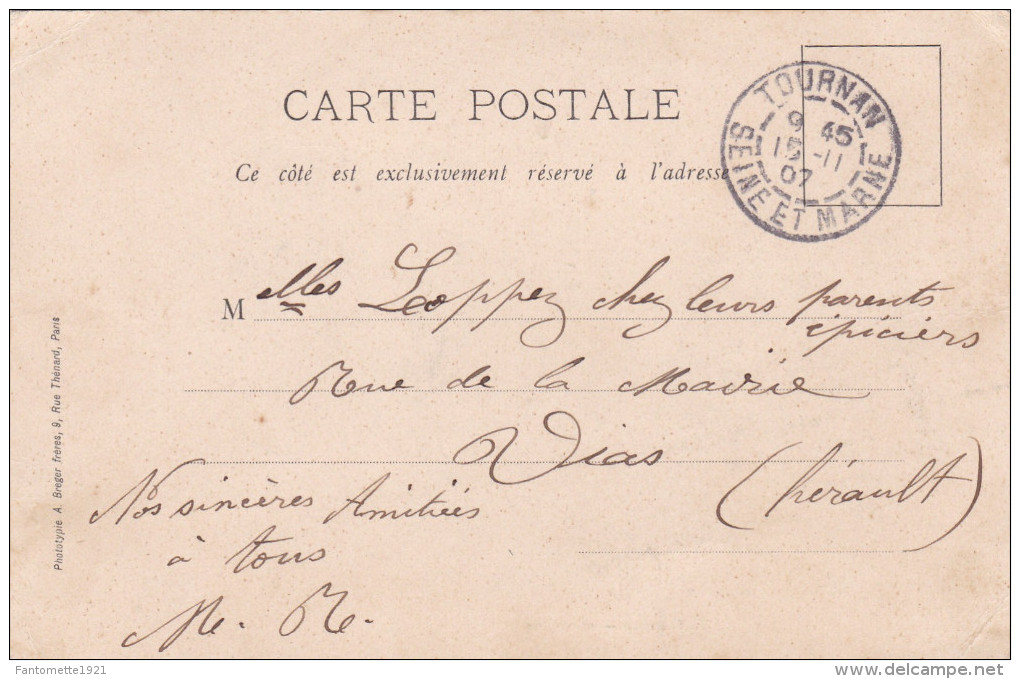 CARTE POSTALE
Ce côté est exclusivement réservé à l'adresse
TOURNAN
9 45
15 -11
07
SEINE ET MARNE
Melles Loppez chez leurs parents
épiciers
Rue de la Mairie
Vias
(hérault)
Nos sincères Amitiés
à tous
M. R.
Phototypie A. Breger frères, 9, Rue Thénard, Paris
Fantomette1921
delcampe.net